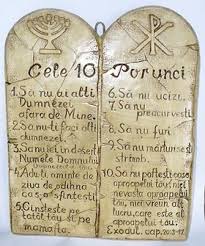 Cele 10 Porunci
1. Să nu ai alți
Dumnezei
afara de Mine.
2. Să nu-ți faci alți
dumnezei
3. Să nu iei în deșert
Numele Domnului
4. Adu-ți aminte de
ziua de odihnă
ca s-o sfințești
5. Cinstește pe
tatăl tău și pe
mama ta
6. Să nu ucizi.
7. Să nu
preacurvești
8. Să nu furi
9. Să nu mărturisești
strîmb.
10. Să nu poftești casa
aproapelui tău, nici
nevasta aproapelui
tău, nici vreun alt
lucru, care este al
aproapelui tău.
Exodul. cap. 20.3-17